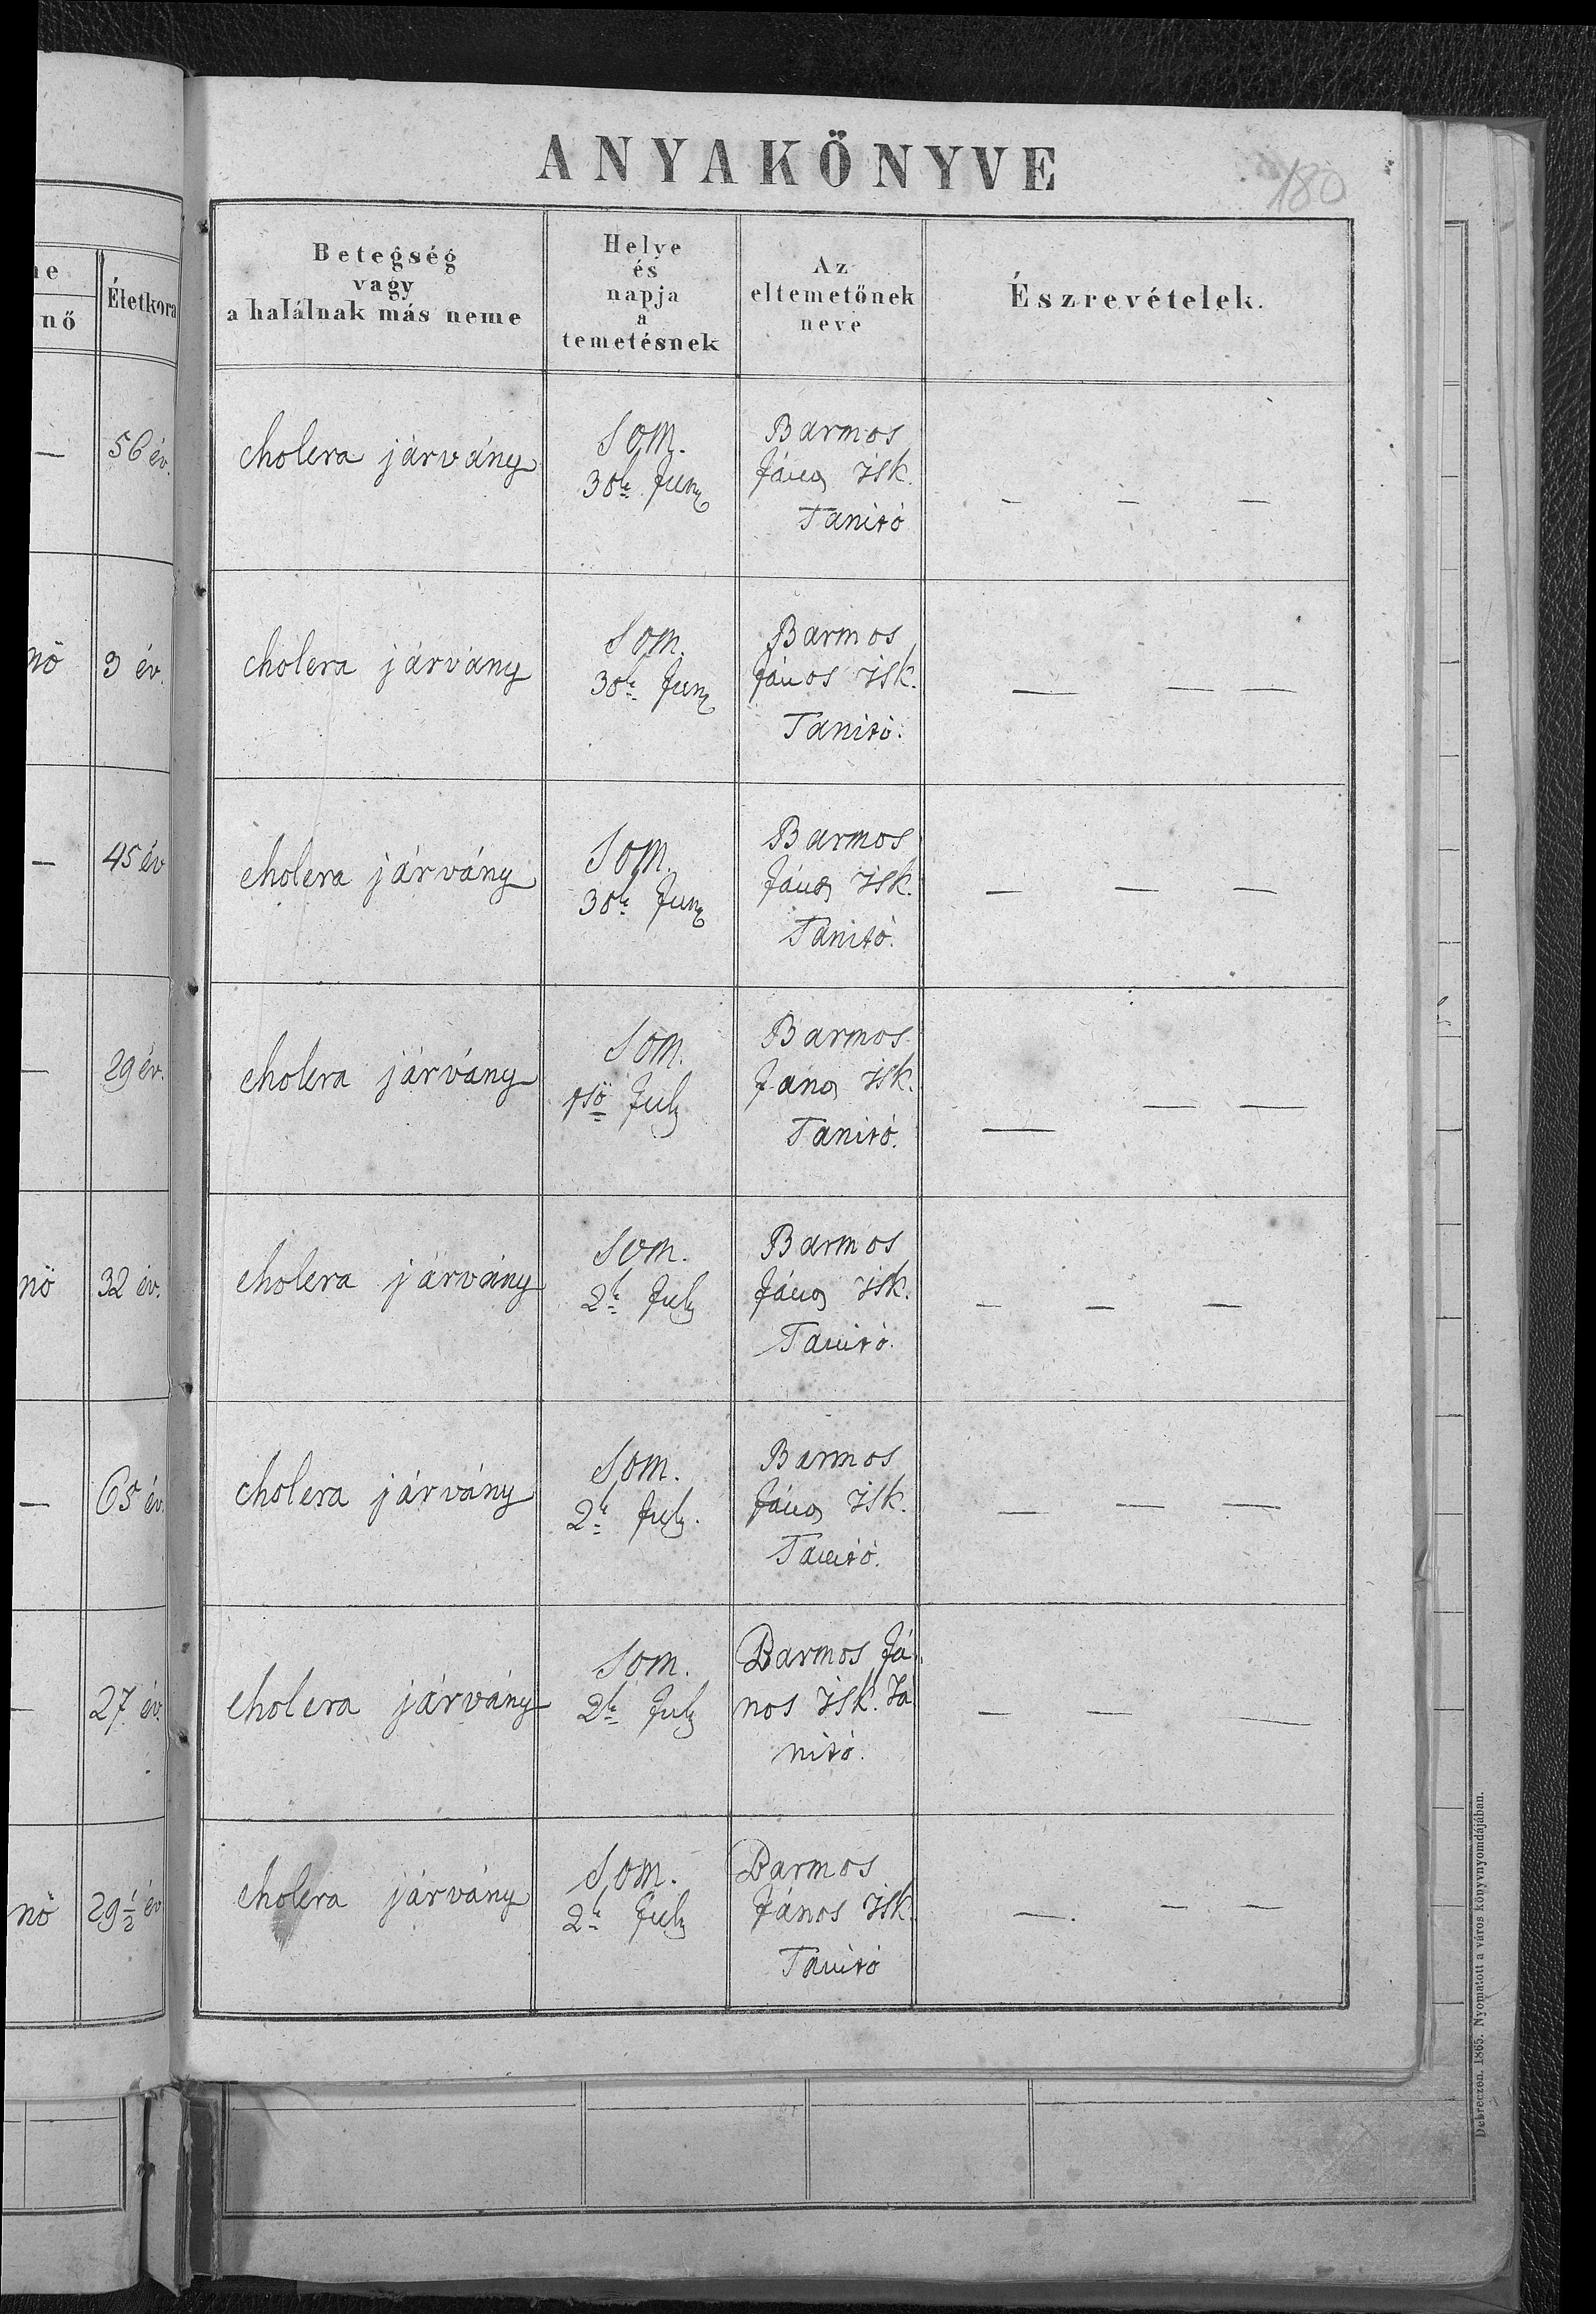 ANYAKÖNYVE
180
nő
Életkora
Betegség
vagy
a halálnak más neme
Helye
és
napja
a
temetésnek
Az
eltemetőnek
neve
Észrevételek.
—
56 év.
cholera járvány
Som.
30k Juny
Barmos
János isk.
Tanitó
— — —
nö
3 év.
cholera járvány
Som.
30k Juny
Barmos
János isk.
Tanitó.
— — —
—
45 év
cholera járvány
Som.
30k Juny
Barmos
János isk.
Tanitó.
— — —
—
29 év.
cholera járvány
Som.
1ső July
Barmos
János isk.
Tanitó.
— — —
nö
32 év.
cholera járvány
Som.
2k July
Barmos
János isk.
Tanitó.
— — —
—
65 év.
cholera járvány
Som.
2k July.
Barmos
János isk.
Tanitó.
— — —
—
27 év.
cholera járvány
Som.
2k July
Barmos Já
nos isk. Ta
nitó.
— — —
nö
29 1/2 év
cholera járvány
Som.
2k July
Barmos
János isk.
Tanitó
— — —
Debreczen. 1865. Nyomatott a város könyvnyomdájában.